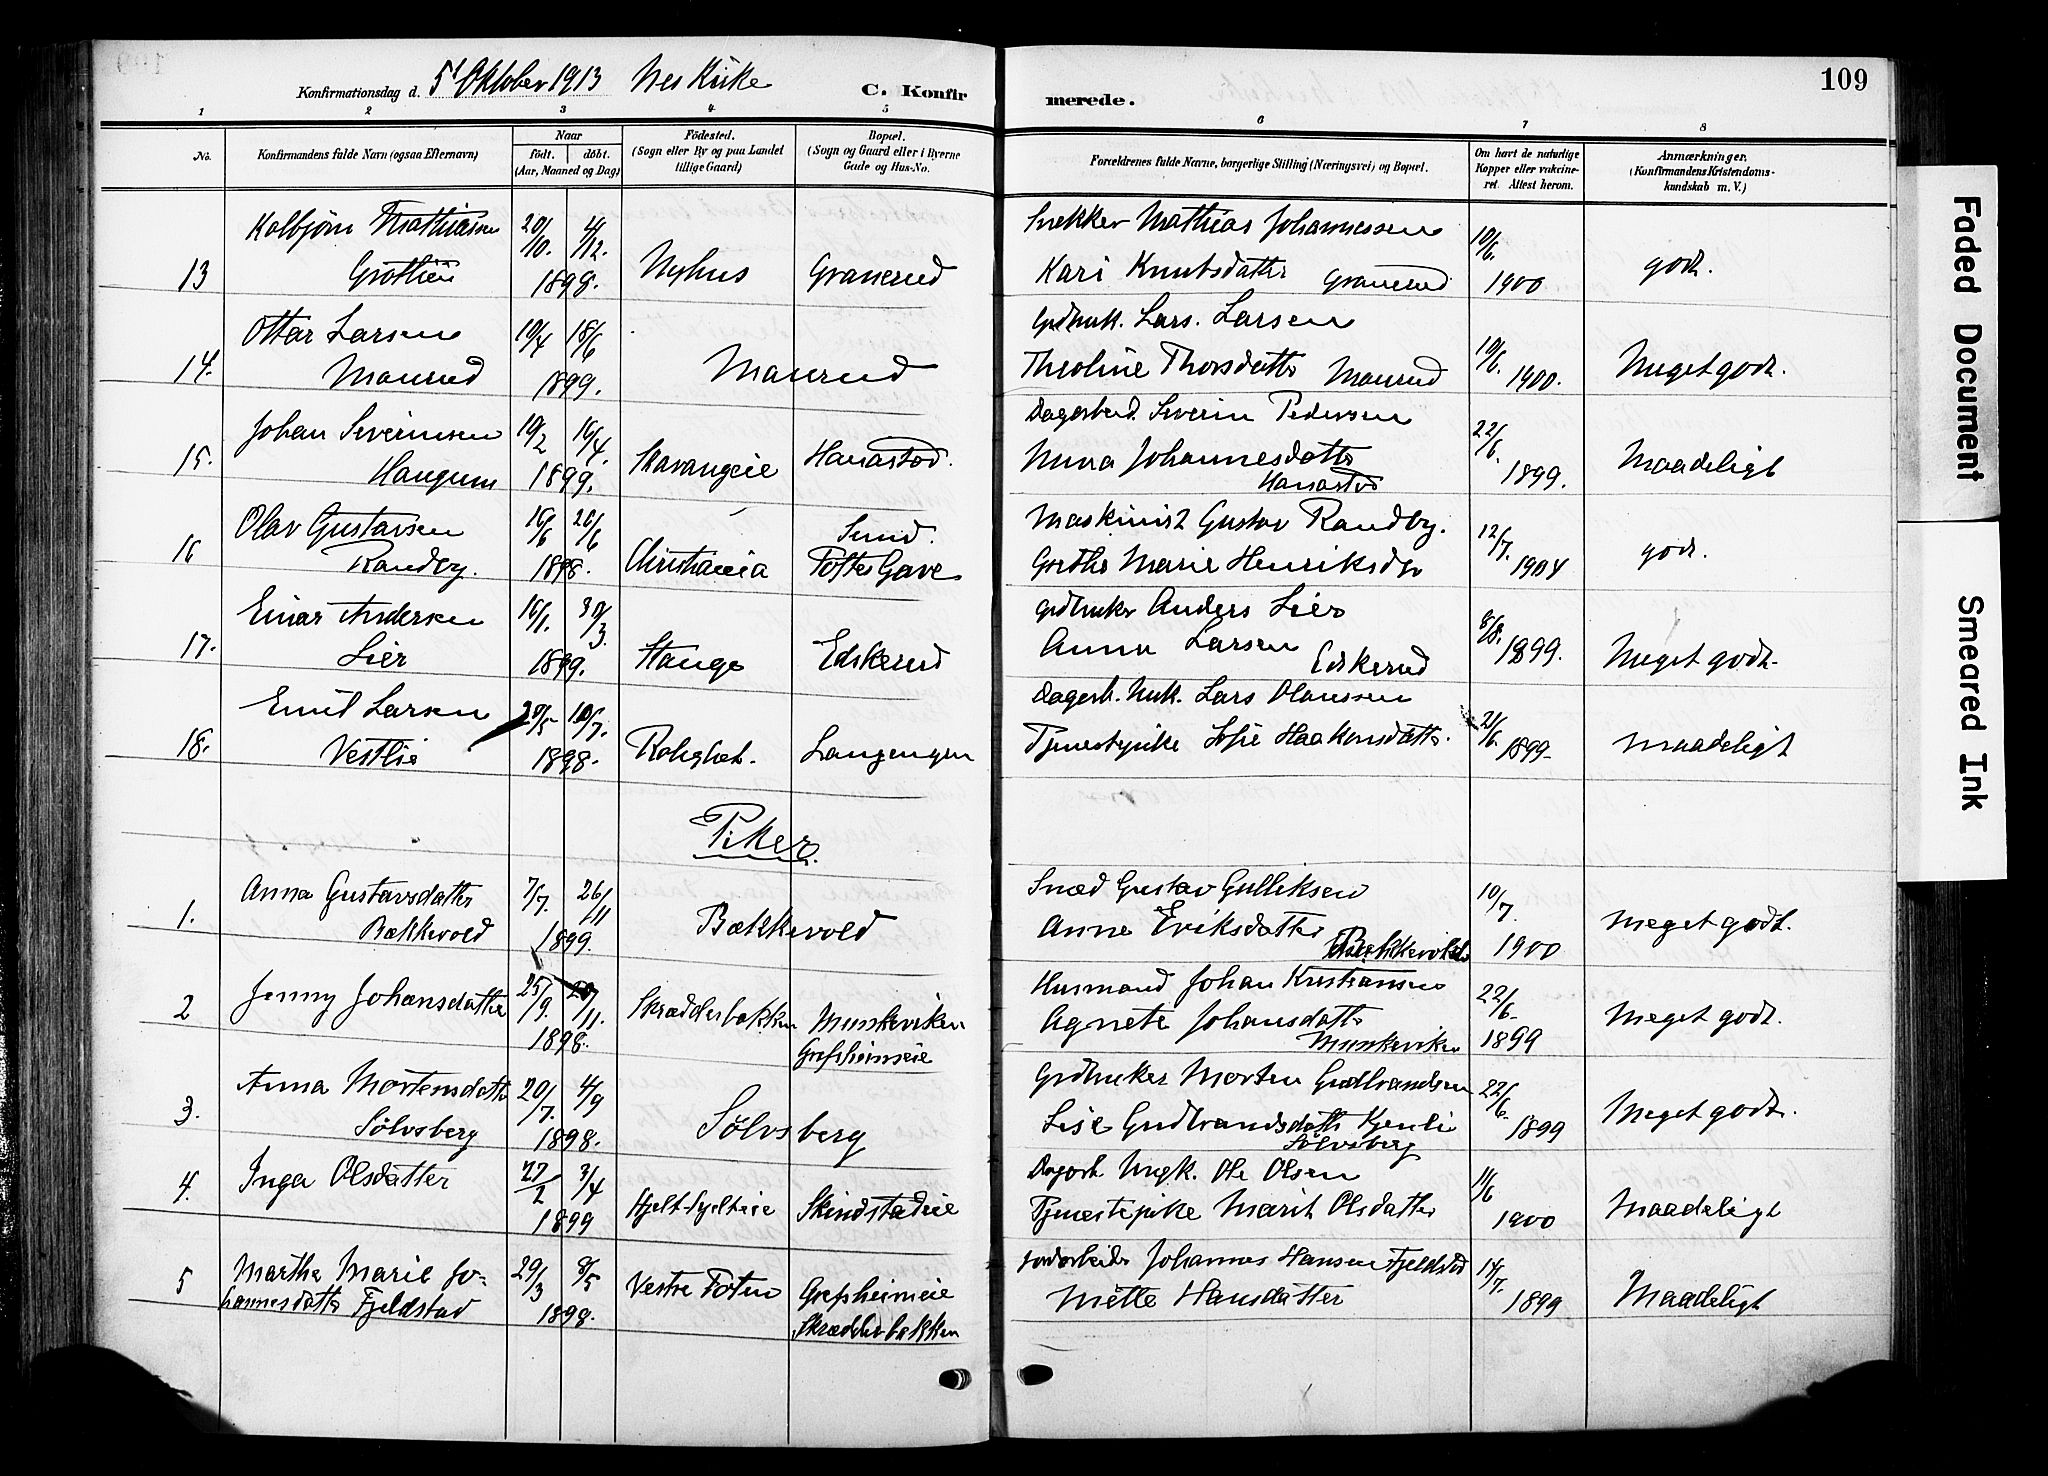 109
Konfirmationsdag d. 5t Oktober 1913 Nes Kirke
C. Konfir merede.
1 2 3 4 5 6 7 8
No.
Konfirmandens fulde Navn (ogsaa Efternavn)
Naar
födt. döbt.
(Aar, Maaned og Dag)
Födested.
(Sogn eller By og paa Landet
tillige Gaard)
Bopæl.
(Sogn og Gaard eller i Byerne
Gade og Hus-No.
Forældrenes fulde Navne, borgerlige Stilling (Næringsvei) og Bopæl.
Om havt de naturlige
Kopper eller vakcine-
ret. Attest herom.
Anmærkninger.
(Konfirmandens Kristendoms-
kundskab m. V.)
Kolbjörn Mathiassen 20/10. 4/12. Snekker Mathias Johannessen 10/6.
13 Grötlien 1898. Nyhus Granerud Kari Knutsdatter Granerud 1900 godt.
Ottar Larsen 19/4 18/6 Grdbruk. Lars Larsen 10/6.
14. Maurud 1899. Maurud Theoline Thorsdatter Maurud 1900. Meget godt.
Johan Severinsen 19/2 16/4. Dagarbeid. Severin Pedersen 22/6.
15. Haugum 1899. Stavangeie Hanastad. Anna Johannesdatter Hanastad 1899. Maadeligt
Olav Gustavsen 16/6 26/6 Sund. Maskinist Gustav Randby. 12/7.
16 Randby. 1898. Christiania Toftes Gave Grethe Marie Henriksdtr 1904 godt.
Einar Andersen 16/1. 30/3. Grdbruker Anders Lier 8/8.
17. Lier 1899. Stange Edskerud Anna Larsen Edskerud 1899. Meget godt.
Emil Larsen 30/5 10/7. Dagarb. Unk. Lars Olaussen 21/6.
18. Vestlie 1898. Rolighet. Langengen Tjenestepike Sofie Haakensdatter. 1899 Maadeligt
Piker.
Anna Gustavsdatter 7/7. 26/11 Smed Gustav Gulliksen 10/7.
1. Bækkevold 1899. Bækkevold Anne Eriksdatter Bækkevold 1900 Meget godt.
2 Jenny Johansdatter 25/9. 20/11. Skrædderbakken Munkeviken Husmand Johan Kristiansen 22/6.
1898. Grefsheimseie Agnete Johansdatter Munkeviken 1899 Meget godt.
Anna Mortensdatter 20/7. 4/9 Grdbruker Morten Gudbrandsen 22/6.
3. Sölvsberg 1898. Sölvsberg Lise Gudbrandsdatter Kjenli Sölvsberg 1899 Meget godt.
4. Inga Olsdatter 27/2 3/4 Skindstadeie Dagarb. Ungk. Ole Olsen 11/6
1899 Tjenestepike Marit Olsdatter 1900 Maadeligt
5 Marthe Marie Jo- 29/3 8/5 Vestre Toten Grefsheimeie Jordarbeider Johannes Hansen Fjeldstad 14/7.
hannesdatter Fjeldstad 1898. Skrædderbakken Mette Hansdatter 1899 Maadeligt
Faded Document
Smeared Ink